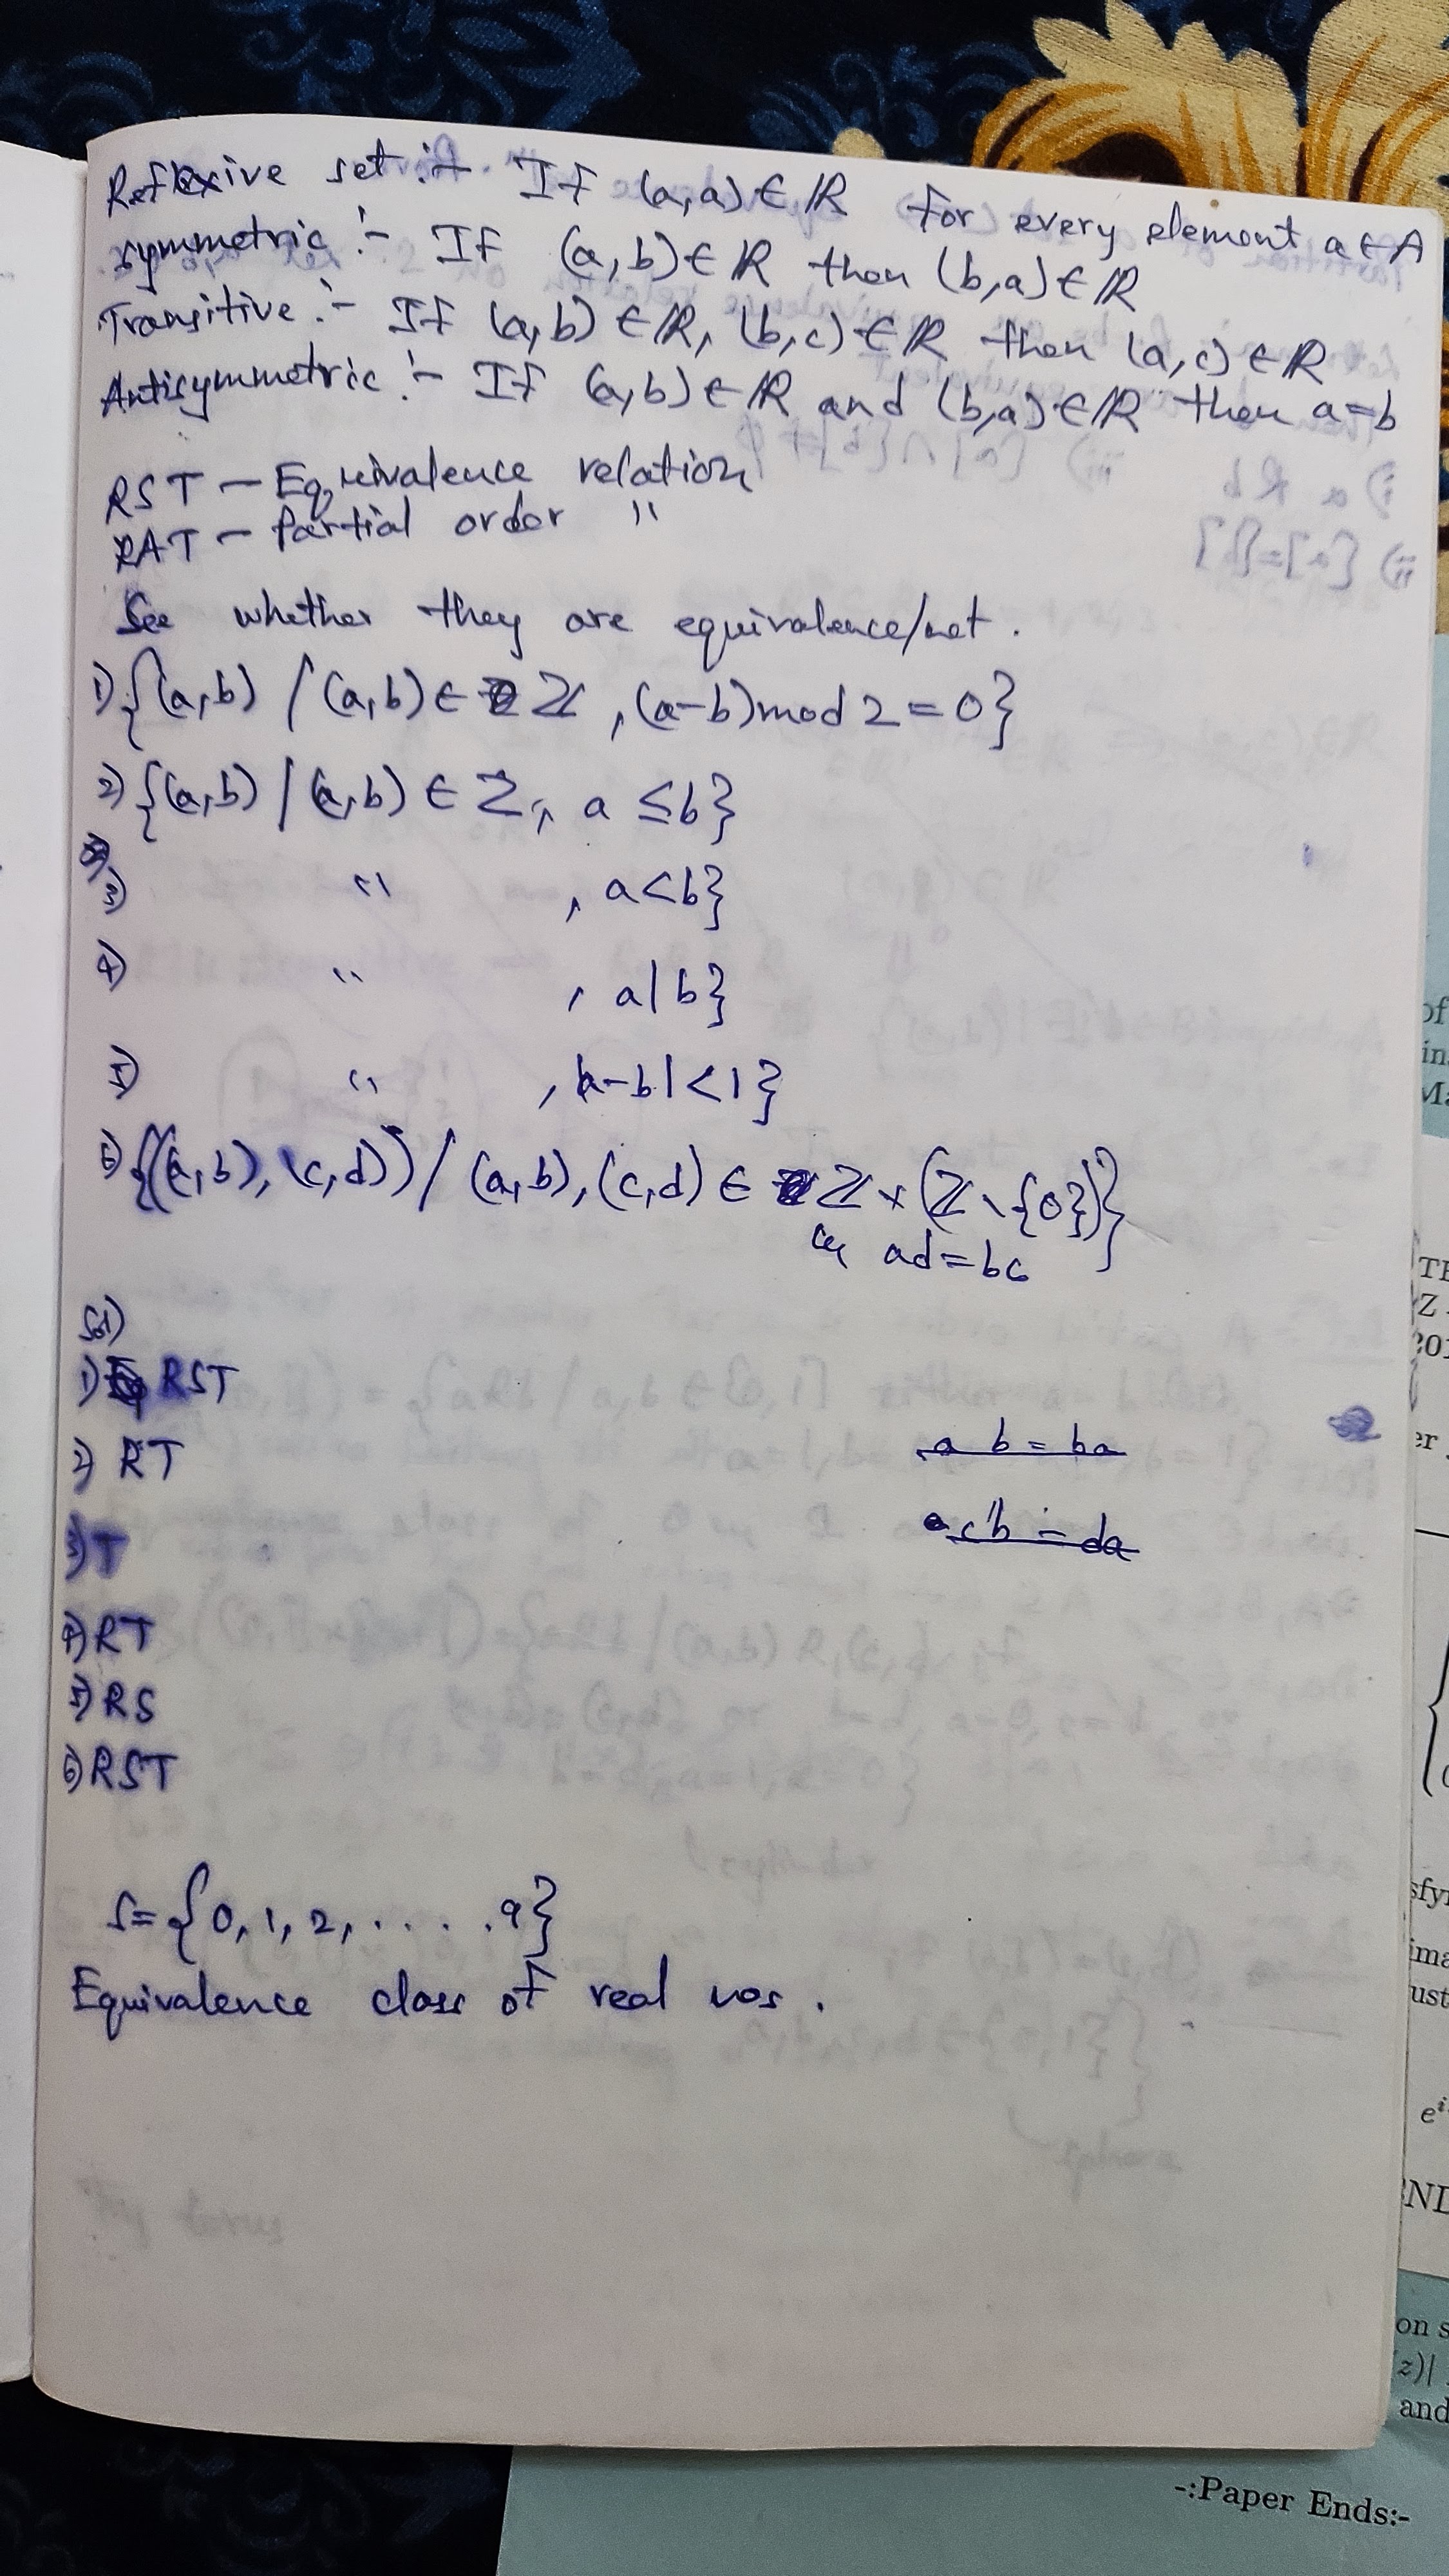 Reflexive set :- If (a,a) ∈ ℝ for every element a ∈ A
symmetric :- If (a,b) ∈ ℝ then (b,a) ∈ ℝ
Transitive :- If (a,b) ∈ ℝ, (b,c) ∈ ℝ then (a,c) ∈ ℝ
Antisymmetric :- If (a,b) ∈ ℝ and (b,a) ∈ ℝ then a=b
RST - Equivalence relation
RAT - Partial order "
See whether they are equivalence/not.
1) {(a,b) / (a,b) ∈ ℤ, (a-b) mod 2 = 0}
2) {(a,b) / (a,b) ∈ ℤ, a ≤ b}
3) " , a<b}
4) " , a|b}
5) " , |a-b|<1}
6) {((a,b), (c,d)) / (a,b), (c,d) ∈ ℤ × (ℤ \ {0})}
ad = bc
Sol)
1) RST
2) RT
a b = ba
3) T
cb = da
4) RT
5) RS
6) RST
S = {0, 1, 2, ..... 9}
Equivalence class of real nos.
-:Paper Ends:-